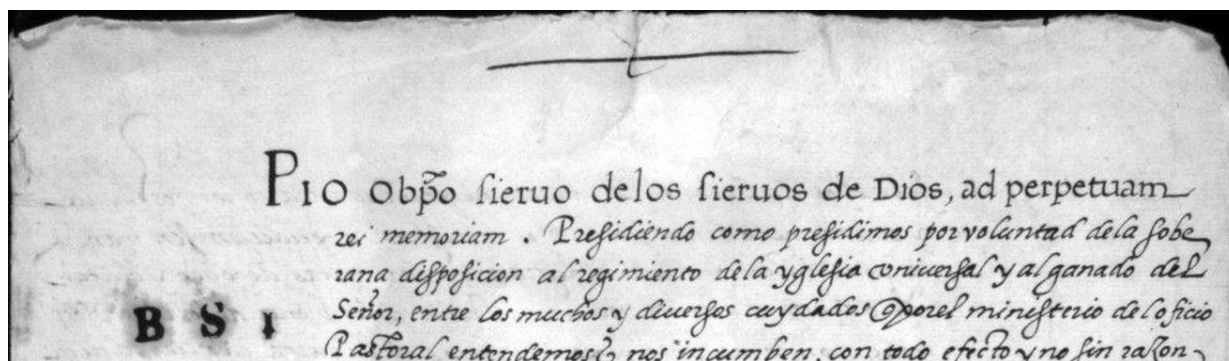 Pio obp̃o sieruo delos sieruos de Dios, ad perpetuam
rei memoriam. Presidiendo como presidimos por voluntad dela sobe
rana disposicion al regimiento dela yglesia vniuersal y al ganado del
B S Señor, entre los muchos y diuersos cuydados porel ministerio del oficio
Pastoral entendemos nos incumben, con todo efecto y no sin razon